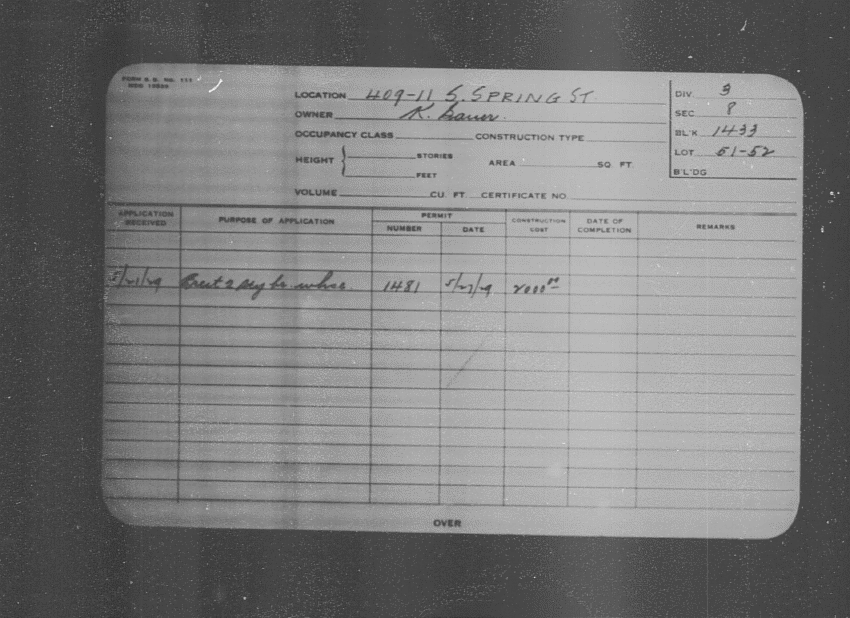 FORM S. B. No. 111
LOCATION 409-11 S. SPRING ST.
OWNER K. Bauer.
OCCUPANCY CLASS CONSTRUCTION TYPE
HEIGHT { STORIES
FEET
AREA SQ. FT.
VOLUME CU. FT. CERTIFICATE NO.
DIV. 3
SEC. 8
BL'K 1433
LOT 51-52
B'L'DG
APPLICATION RECEIVED PURPOSE OF APPLICATION PERMIT NUMBER DATE CONSTRUCTION COST DATE OF COMPLETION REMARKS
5/21/29 Erect 2 sty br. whse. 1481 5/27/29 2000 00
OVER